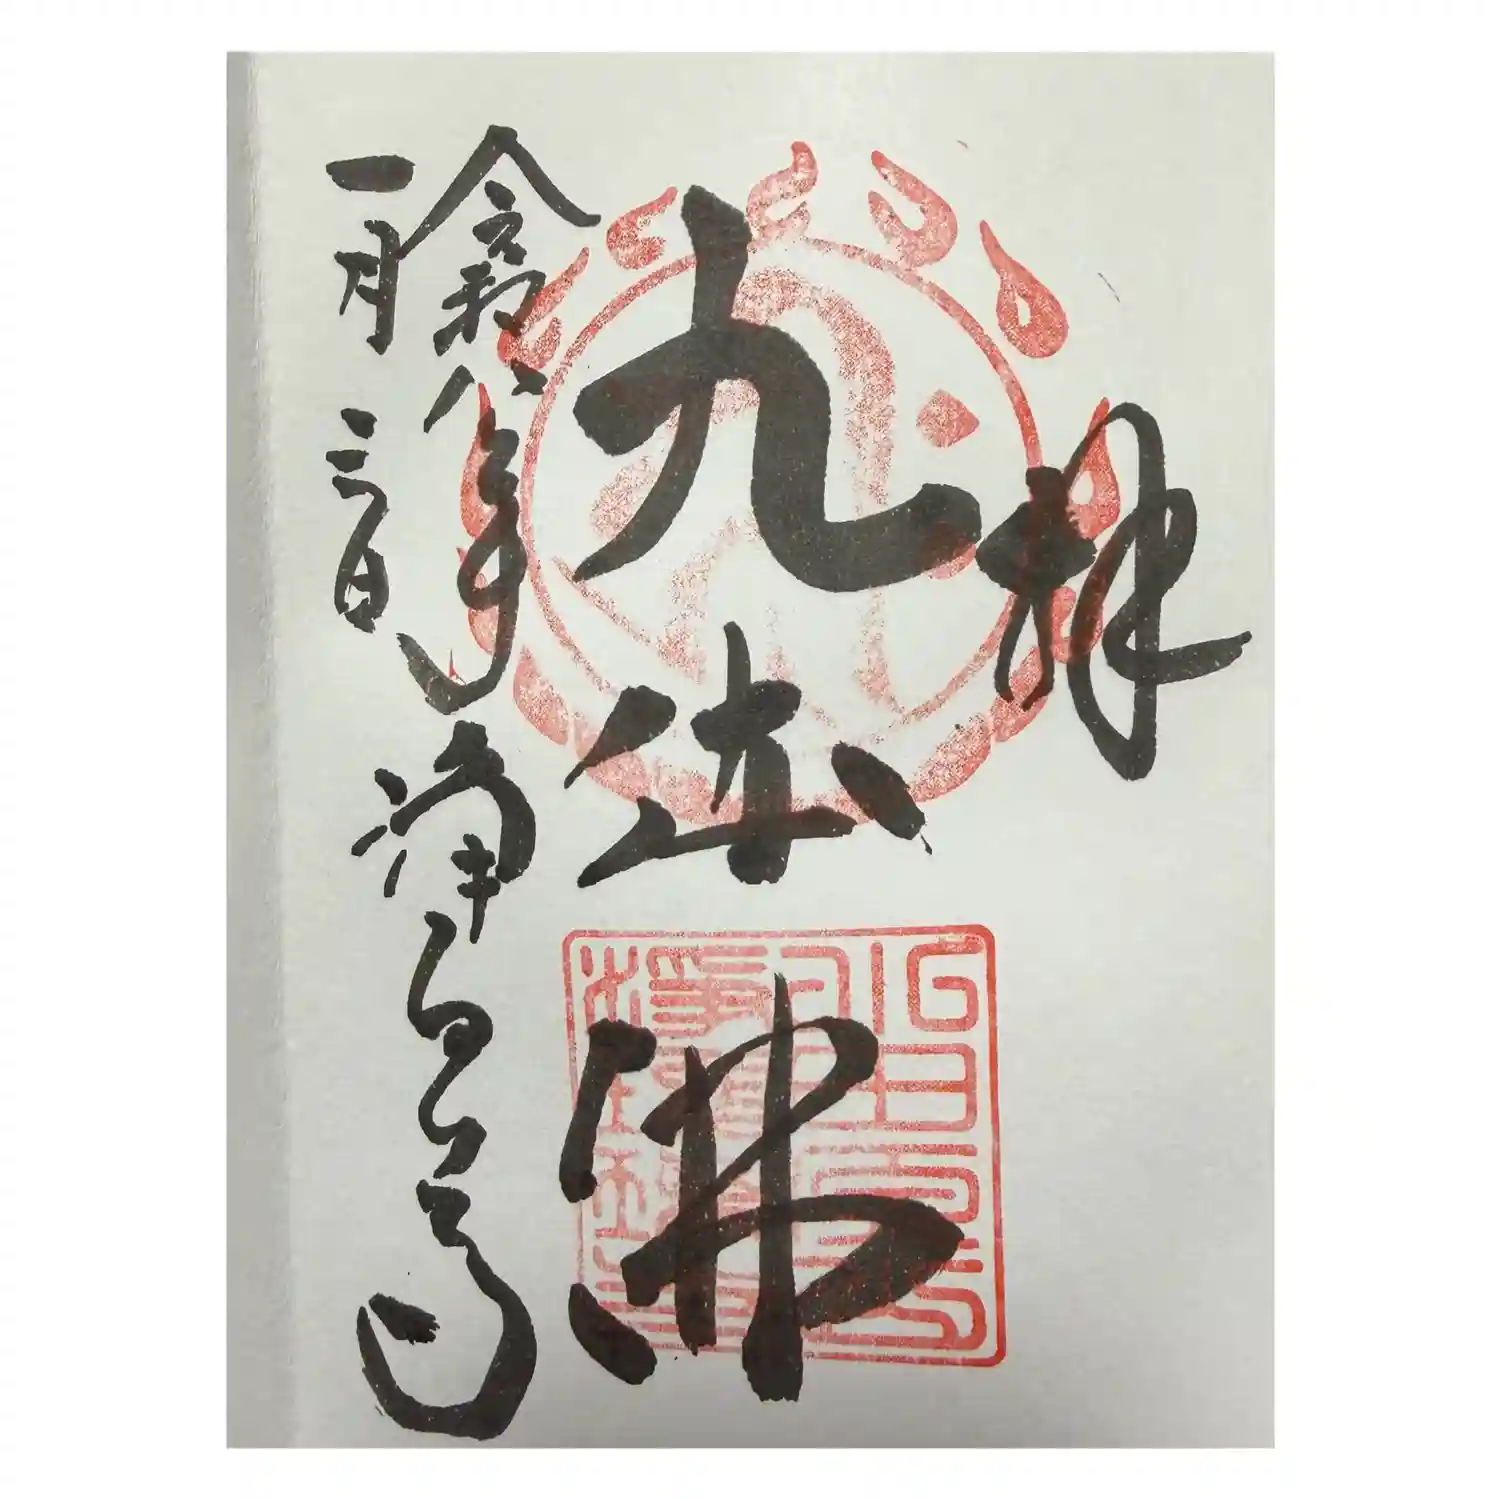 拝
九体佛
令和八年 浄瑠璃寺
一月三日